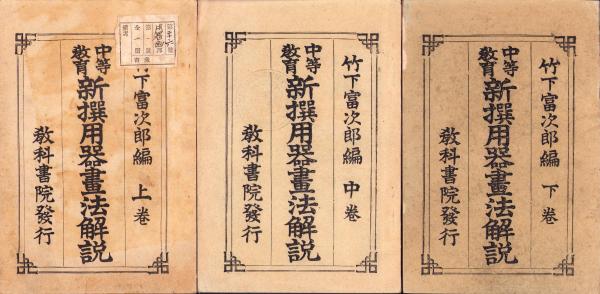 竹下富次郎編 上卷
中等教育
新撰用器畫法解説
教科書院發行
竹下富次郎編 中卷
中等教育
新撰用器畫法解説
教科書院發行
竹下富次郎編 下卷
中等教育
新撰用器畫法解説
教科書院發行